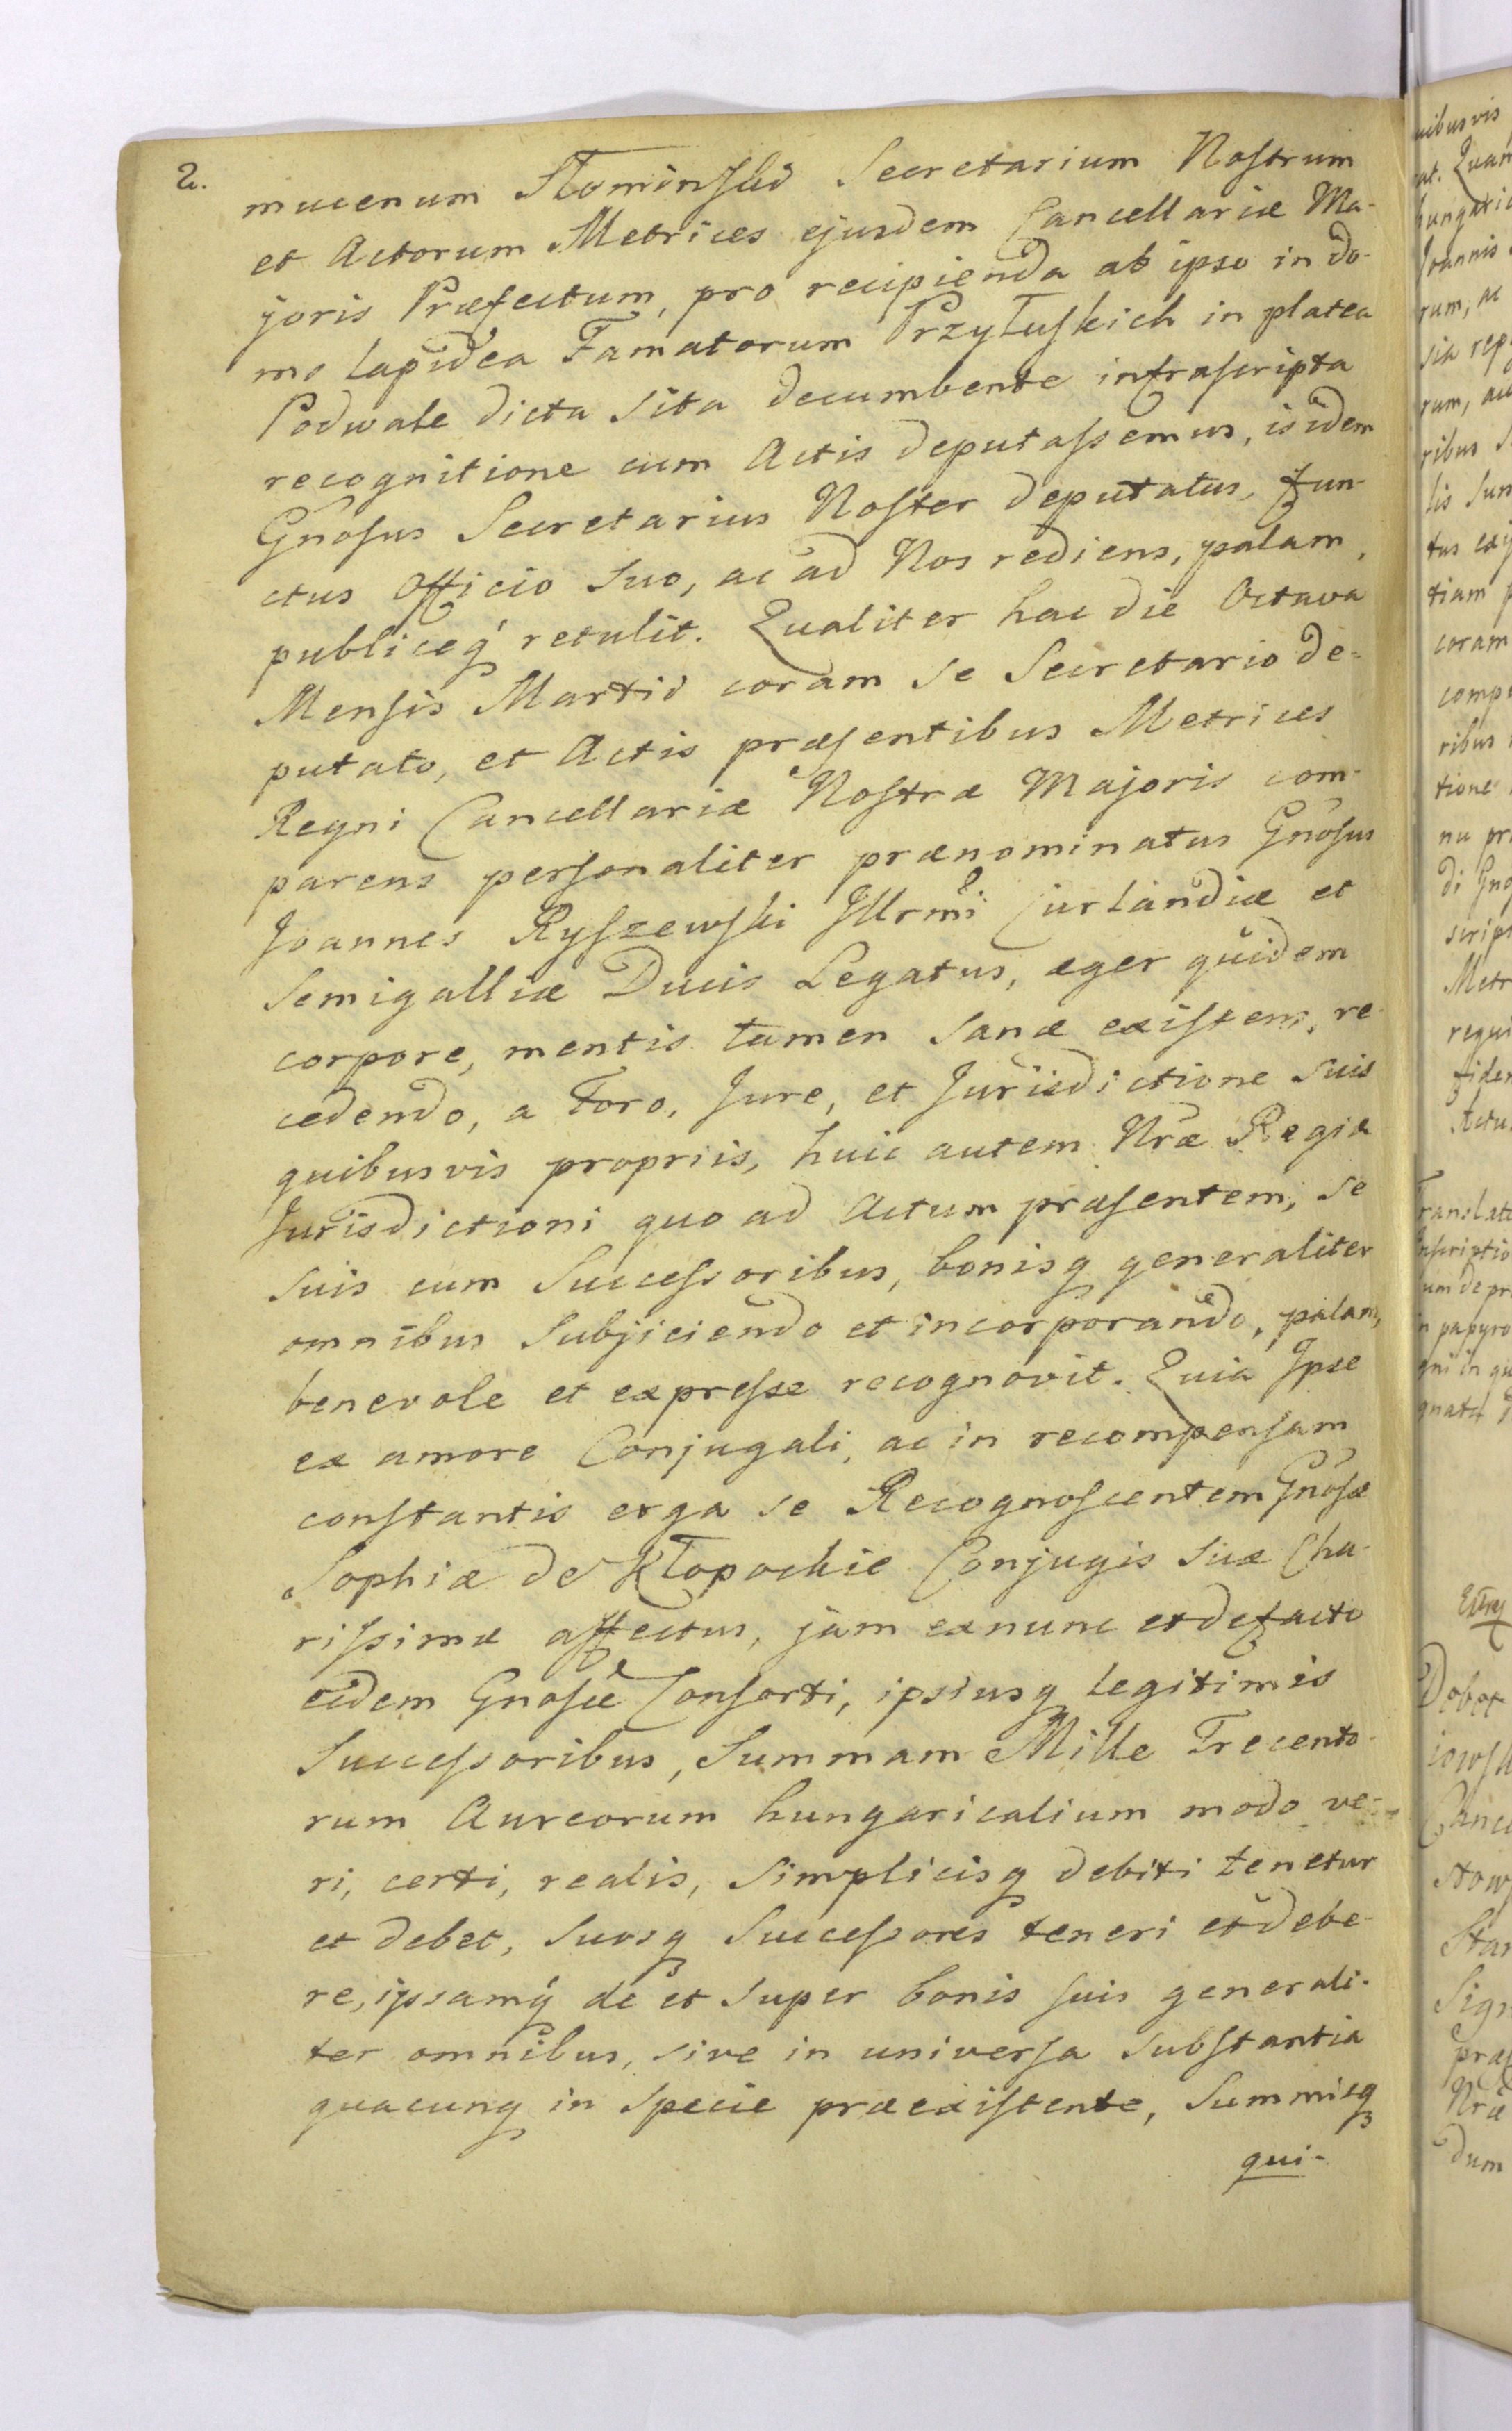 2.
mucenum Słominski Secretarium Nostrum
et Actorum Metrices ejusdem Cancellariæ Ma-
joris Præfectum, pro recipienda ab ipso in do-
mo lapidea Famatorum Przyłuskich in platea
Podwale dicta sita decumbente infrascripta
recognitione cum Actis deputassemus, isidem
Gnosus Secretarius Noster deputatus, fun-
ctus officio suo, ac ad Nos rediens, palam,
publiceq retulit. Qualiter hac die Octava
Mensis Martij coram se Secretario de-
putato, et Actis præsentibus Metrices
Regni Cancellariæ Nostræ Majoris com-
parens personaliter prænominatus Gnosus
Joannes Ryszewski Illrmi Curlandiæ et
Semigalliæ Ducis Legatus, æger quidem
corpore, mentis tamen sanæ existens, re-
cedendo, a Foro, Jure, et Jurisdictione suis
quibusvis propriis, huic autem Nræ Regiæ
Jurisdictioni quo ad Actum præsentem, se
suis cum Successoribus, bonisq generaliter
omnibus subjiciendo et incorporando, palam,
benevole et expresse recognovit. Quia Ipse
ex amore Conjugali, ac in recompensam
constantis erga se Recognoscentem Gnosæ
Sophiæ de Kłopockie Conjugis suæ Cha-
rissimæ affectus, jam exnunc et defacto
eidem Gnosæ Consorti, ipsiusq legitimis
Successoribus, Summam Mille Trecento-
rum Aureorum hungaricalium modo ve-
ri, certi, realis, simplicisq debiti tenetur
et debet, suosq Successores teneri et debe-
re, ipsamq de et super bonis suis generali-
ter omnibus, sive in universa substantia
quacunq in specie præexistente, Summisq
qui-